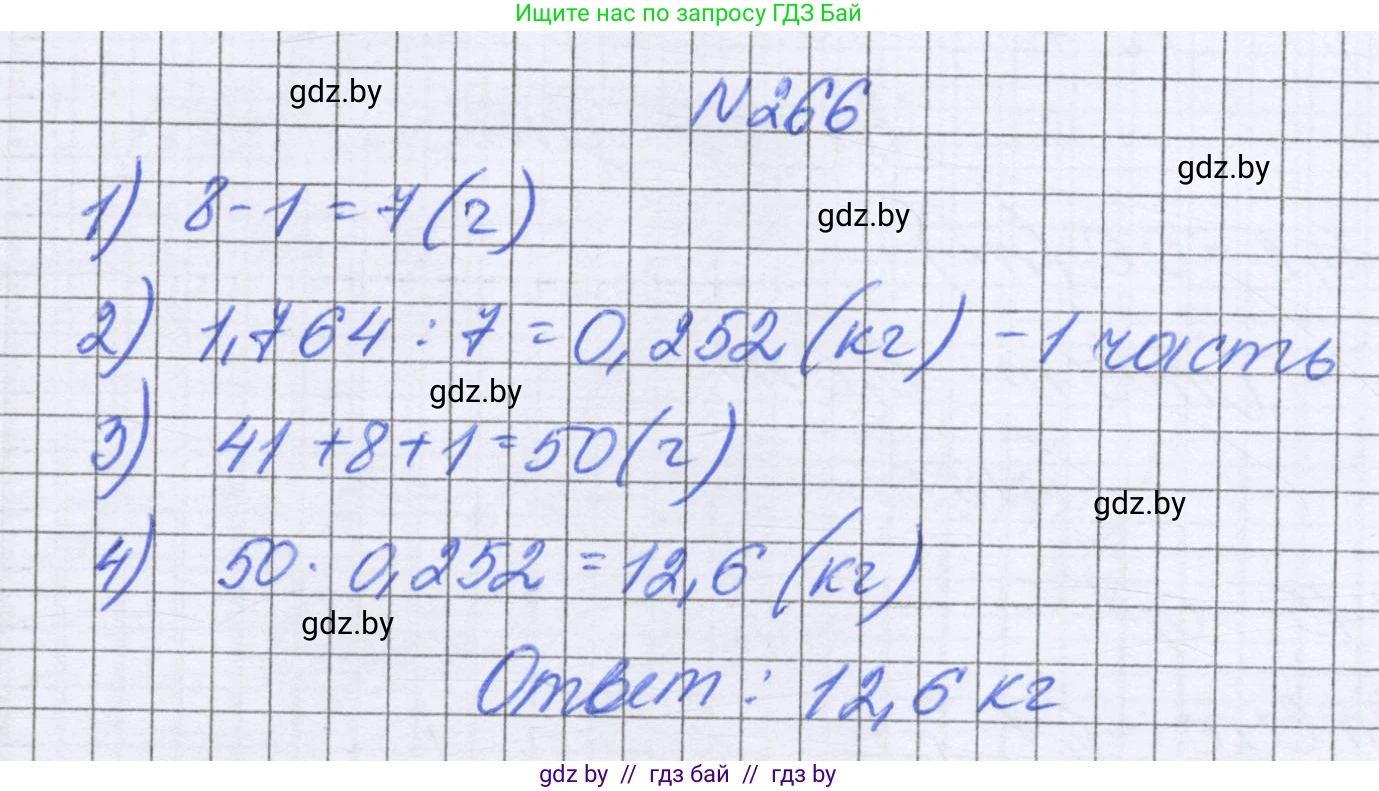 Ищите нас по запросу ГДЗ Бай
gdz.by
N266
gdz.by
1) 8-1=7(г)
gdz.by
2) 1,764:7=0,252(кг) -1 часть
gdz.by
3) 41+8+1=50(г)
gdz.by
4) 50·0,252=12,6(кг)
gdz.by
Ответ: 12,6 кг
gdz by // гдз бай // гдз by